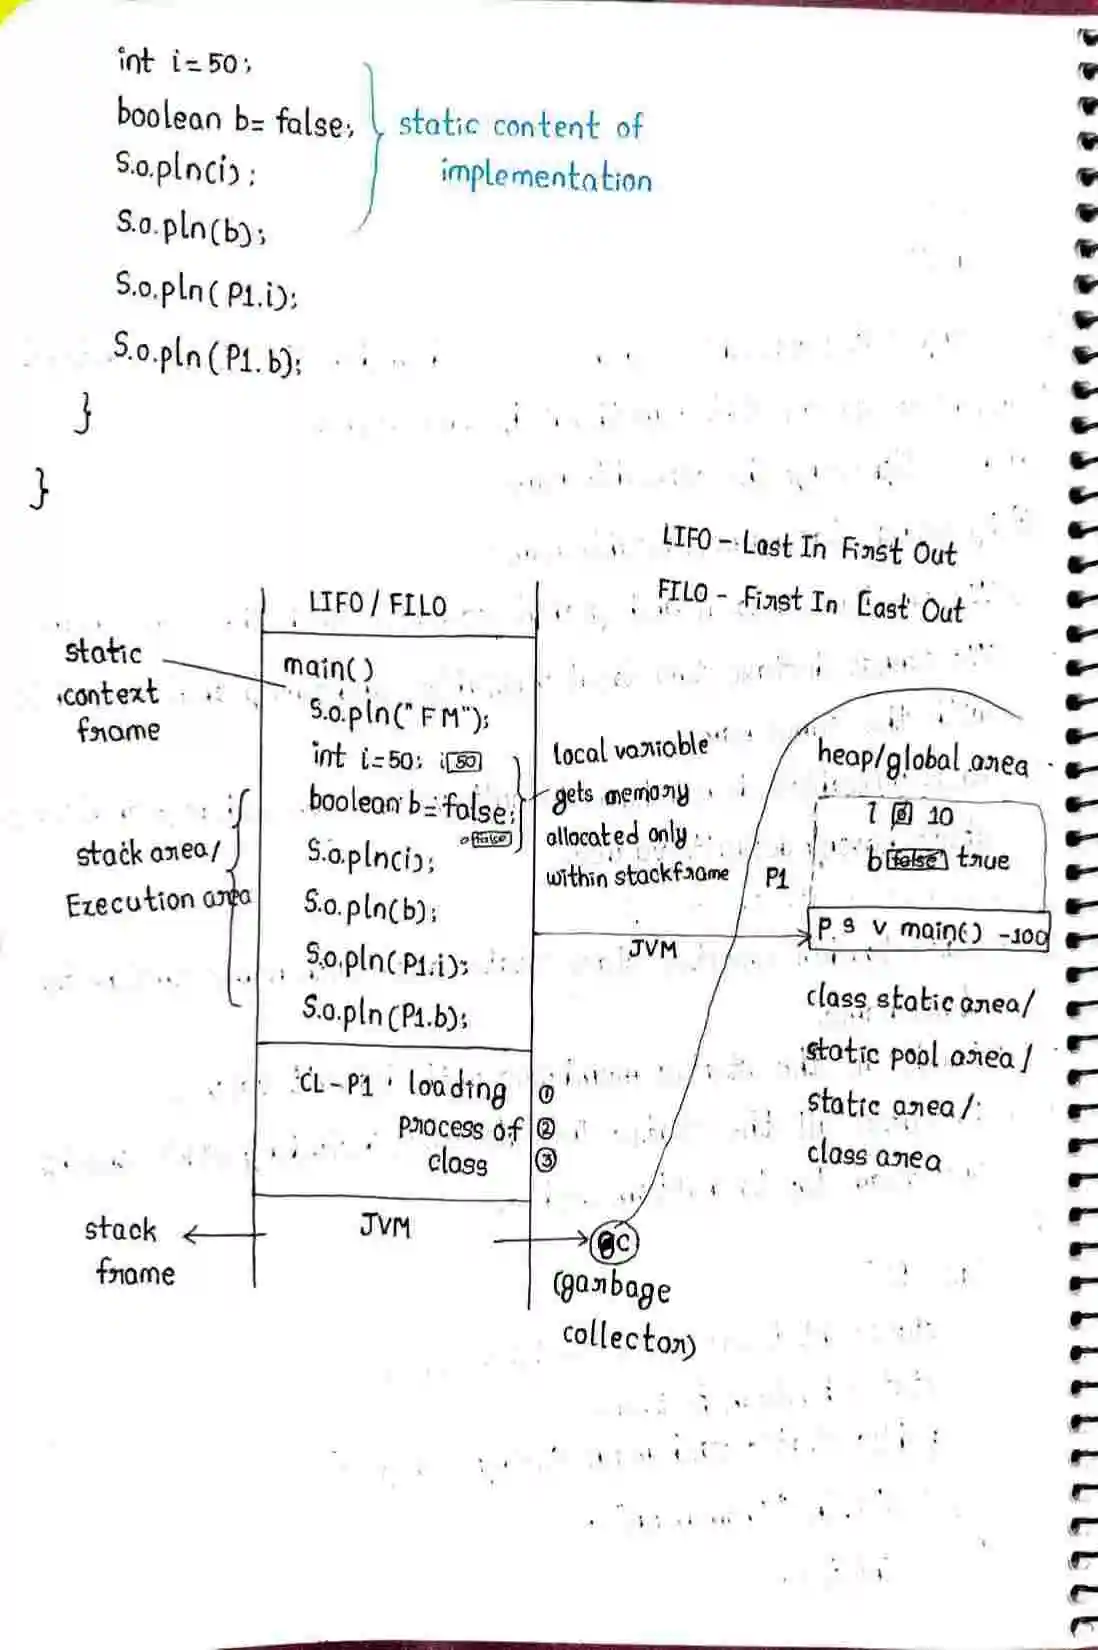 int i=50;
boolean b= false;
S.o.pln(i);
S.o.pln(b);
static content of
implementation
S.o.pln(P1.i);
S.o.pln(P1.b);
}
}
LIFO - Last In First Out
FILO - First In Last Out
LIFO / FILO
static
context
frame
main()
S.o.pln("FM");
int i=50; i 50
boolean b=false;
false
S.o.pln(i);
S.o.pln(b);
S.o.pln(P1.i);
S.o.pln(P1.b);
stack area/
Execution area
local variable
gets memory
allocated only
within stackframe
heap/global area
10
b false true
P1
P s v main() -100
JVM
class static area/
static pool area/
static area/
class area
CL-P1 loading
process of
class
①
②
③
stack
frame
JVM
GC
(garbage
collector)